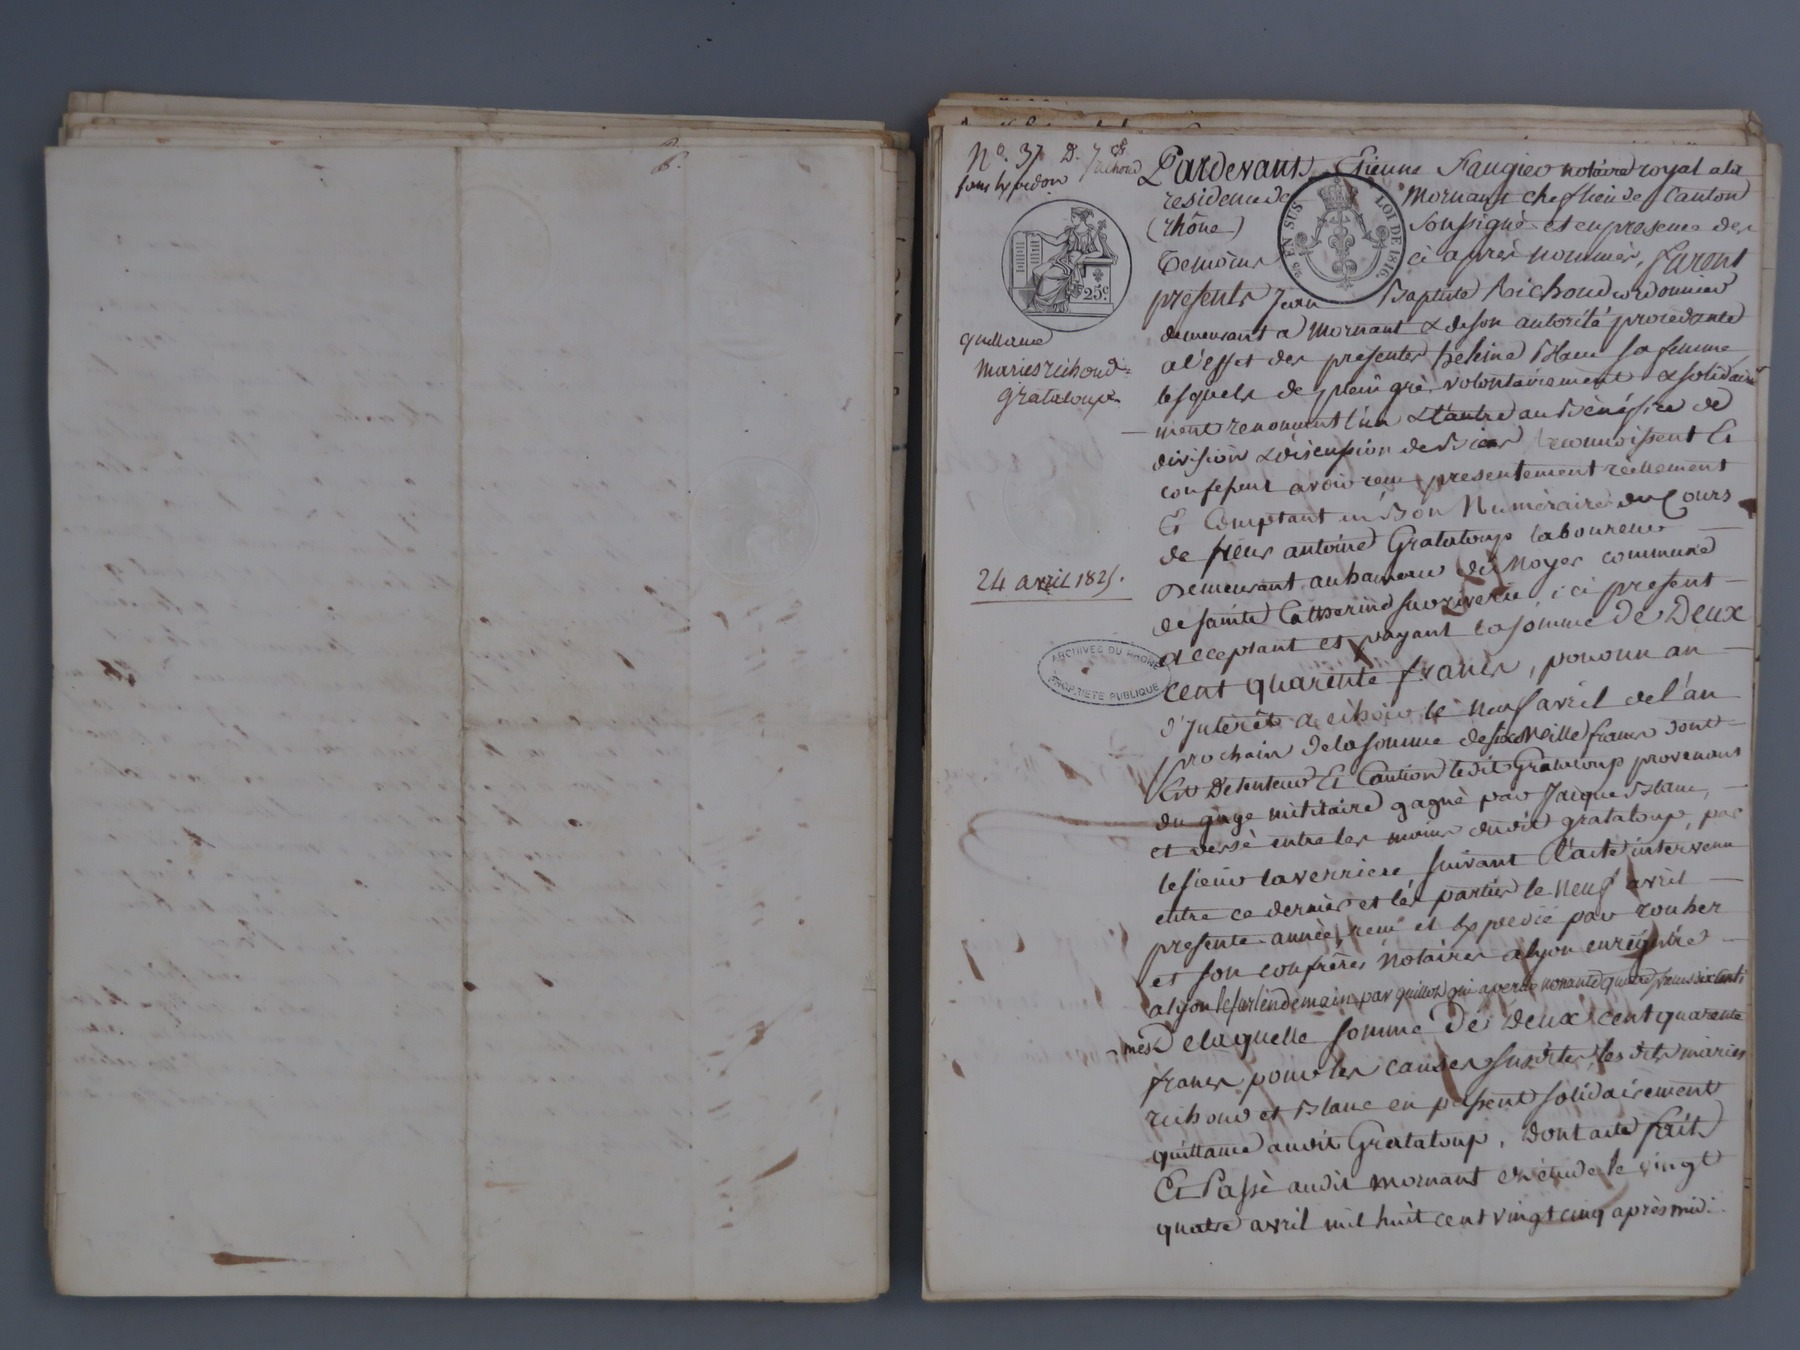 N° 37 D.
Pardevant Etienne Faugier notaire royal a la
residence de Mornant chef lieu de Canton
(rhône) Soussigné et en presence des
Temoins ci après nommés, furent
presents Jean Baptiste Richoud cordonnier
EN SUS LOI DE 1816.
25c
demeurant a Mornant & de son autorité procedante
a l'effet des presentes helene Blanc sa femme
lesquels de plein gré, volontairement & solidaire
ment renonçant l'un & l'autre au Bénéfice de
division & discussion de Biens reconnoissent Et
confessent avoir reçu presentement reellement
Et Comptant en Bon Numéraire du Cours
de sieur antoine Grataloup laboureur
Demeurant au hameau du Noyer commune
de sainte Catherine sur riverie, ici present
acceptant et payant la somme de Deux
cent quarante francs, pour un an
d'Interêt a echoir le neuf avril de l'an
prochain de la somme de six Mille francs dont
Est Détenteur Et Caution ledit Grataloup provenant
du gage militaire gagné par Jacque Blanc,
et versé entre les mains dudit grataloup, par
le sieur laverriere suivant l'acte intervenu
entre ce dernier et les parties le neuf avril
presente année, reçu et Expedié par rouher
et son confrère, Notaires a lyon enregistré
a lyon le surlendemain par guillot qui a perçu nonante quatre francs six centi
mes Delaquelle somme De Deux cent quarante
francs pour les causes susdites, les dits mariés
richoud et Blanc en passent solidairement
quittance audit Grataloup, Dont acte fait
Et Passé audit Mornant en étude le vingt
quatre avril mil huit cent vingt cinq après midi.
quittance
Mariés richoud =
Grataloup
24 avril 1825.
ARCHIVES DU RHONE
PROPRIETE PUBLIQUE